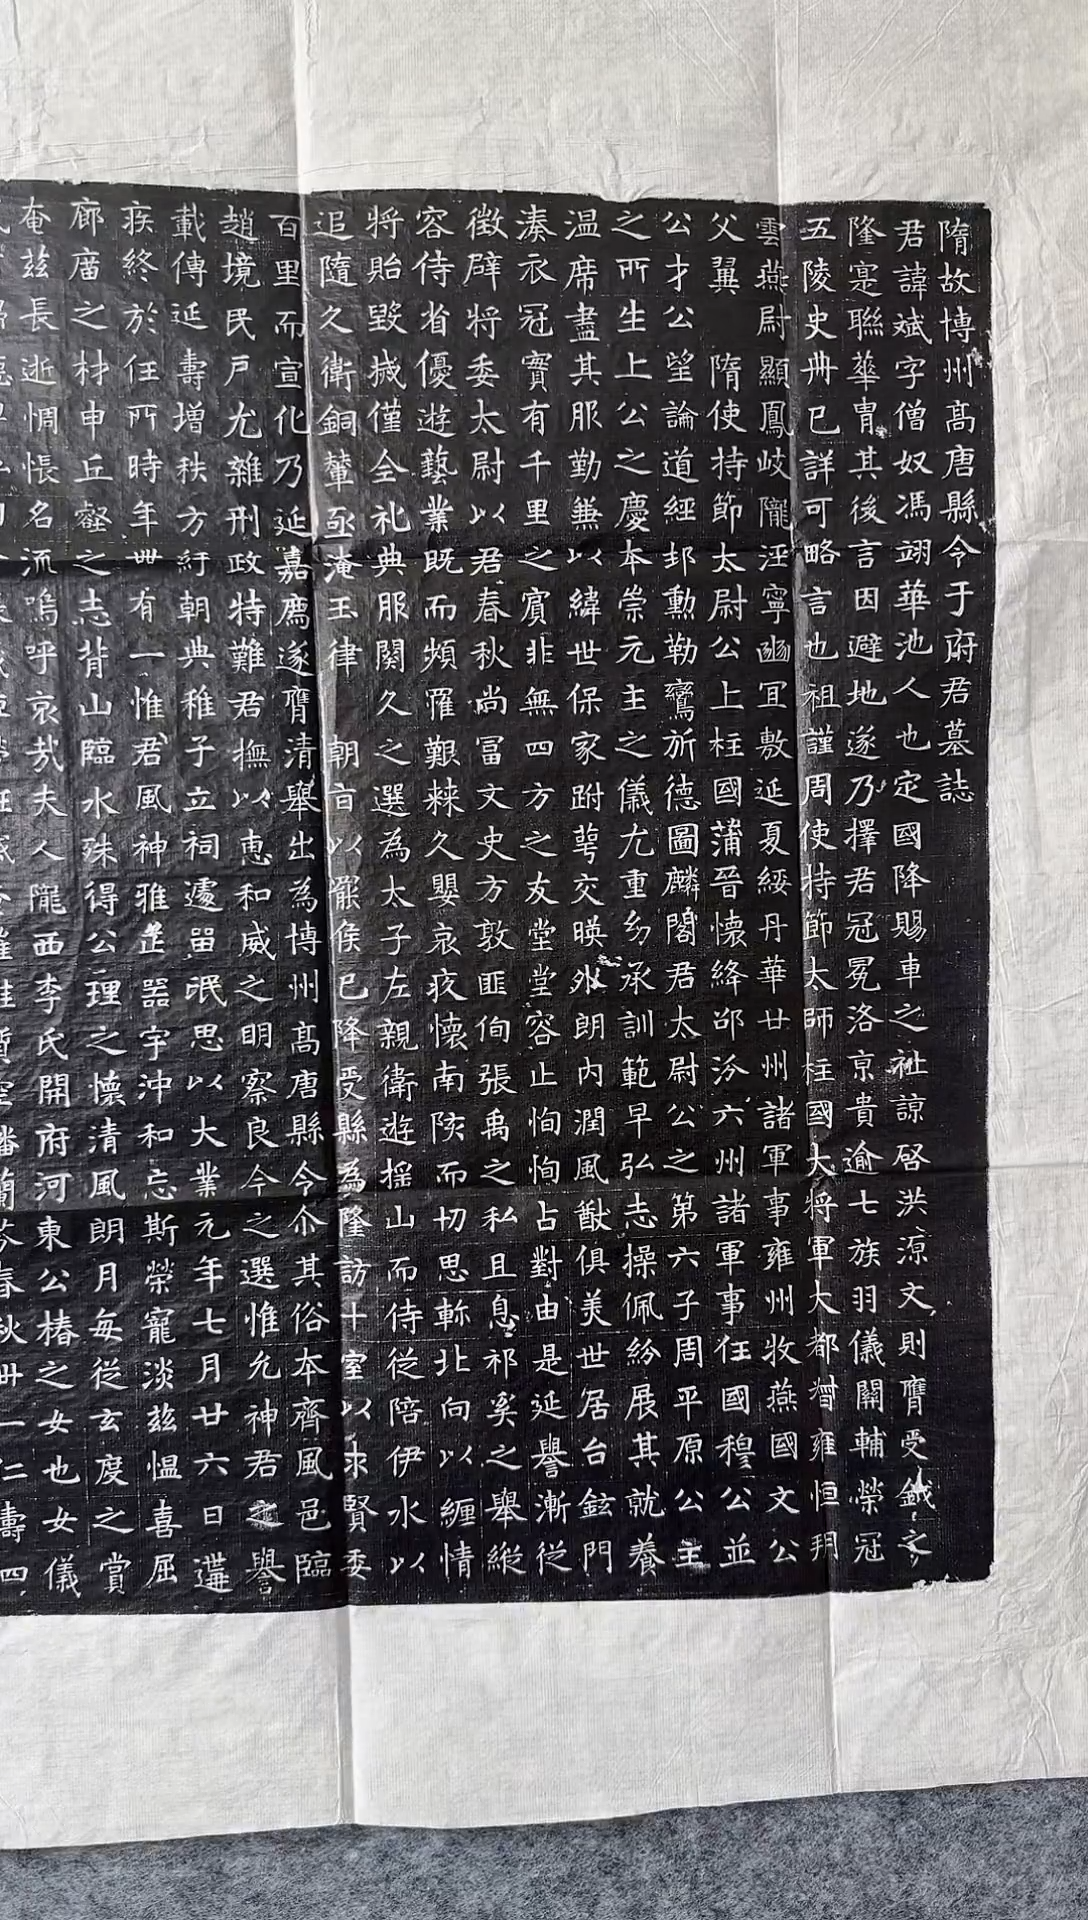 隋故博州髙唐縣令于府君墓誌
君諱斌字僧奴馮翊華池人也定國降賜車之祉諒啓洪源文則膺受鉞之
隆寔聯華胄其後言因避地遂乃擇君冠冕洛京貴逾七族羽儀關輔榮冠
五陵史冊已詳可略言也祖謹周使持節太師柱國大將軍大都督雍恒朔
雲燕尉顯鳳岐隴汪寧豳冝敷延夏綏丹華廿州諸軍事雍州牧燕國文公
父翼 隋使持節太尉公上柱國蒲晉懷絳邵汾六州諸軍事任國穆公並
公才公望論道經邦勳勒鸞旂德圖麟閣君太尉公之第六子周平原公主
之所生上公之慶本崇元主之儀尤重幼承訓範早弘志操佩紛展其就養
温席盡其服勤兼以緯世保家跗萼交暎外朗内潤風猷俱美世居台鉉門
湊衣冠實有千里之賓非無四方之友堂堂容止恂恂占對由是延譽漸從
徵辟將委太尉以君春秋尚冨文史方敦匪佝張禹之私且息祁奚之舉縱
容侍省優遊藝業既而頻罹艱棘久嬰哀疚懷南陔而切思斬北向以纏情
將貽毀搣僅全礼典服闋久之選為太子左親衛遊揺山而侍從陪伊水以
追隨久衛銅輦亟淹玉律 朝旨以罷侯已降受縣為隆訪十室以求賢委
百里而宣化乃延嘉廌遂膺清舉出為博州髙唐縣令尒其俗本齊風邑臨
趙境民戶尤雜刑政特難君撫以恵和威之明察良今之選惟允神君之譽
載傳延壽增秩方紆朝典稚子立祠遽畄氓思以大業元年七月廿六日遘
疾終於任所時年卌有一惟君風神雅㱏器宇沖和忘斯榮寵淡茲愠喜屈
廊庿之材申丘壑之志背山臨水殊得公理之懷清風朗月每從玄度之賞
奄茲長逝惆悵名流嗚呼哀哉夫人隴西李氏開府河東公椿之女也女儀